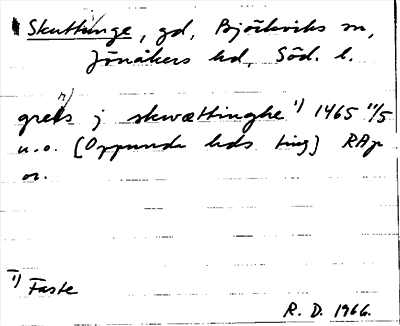 Skuttunge, gd, Björkviks sn,
Jönåkers hd, Söd. l.
greks j skwættinghe 1) 1465 11/5
u.o. (Oppunda hds ting) RAp
or.
1) Faste
R. D. 1966.